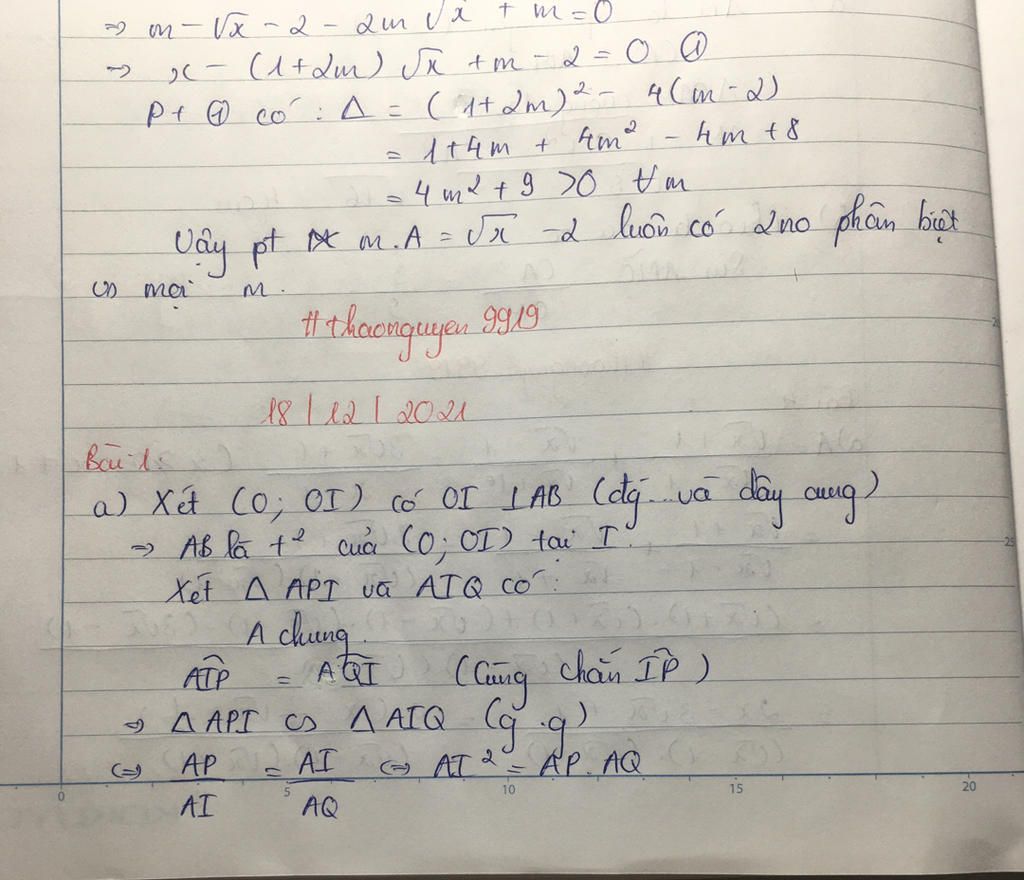 => m - √x - 2 - 2m √x + m = 0
=> x - (1+2m) √x + m - 2 = 0 ①
Pt ① có : Δ = (1+2m)² - 4(m-2)
= 1+4m + 4m² - 4m + 8
= 4m² + 9 >0 ∀m
Vậy pt m.A = √x - 2 luôn có 2no phân biệt
vs mọi m.
#thaonguyen 9919
18 | 12 | 2021
Bài 1:
a) Xét (O; OI) có OI ⊥AB (đg...và dây cung)
=> AB là t² của (O; OI) tại I.
Xét Δ API và AIQ có:
A chung.
AIP = AQI (Cùng chắn IP)
=> Δ API ∽ Δ AIQ (g.g)
<=> AP/AI = AI/AQ <=> AI² = AP.AQ
0 5 10 15 20
25